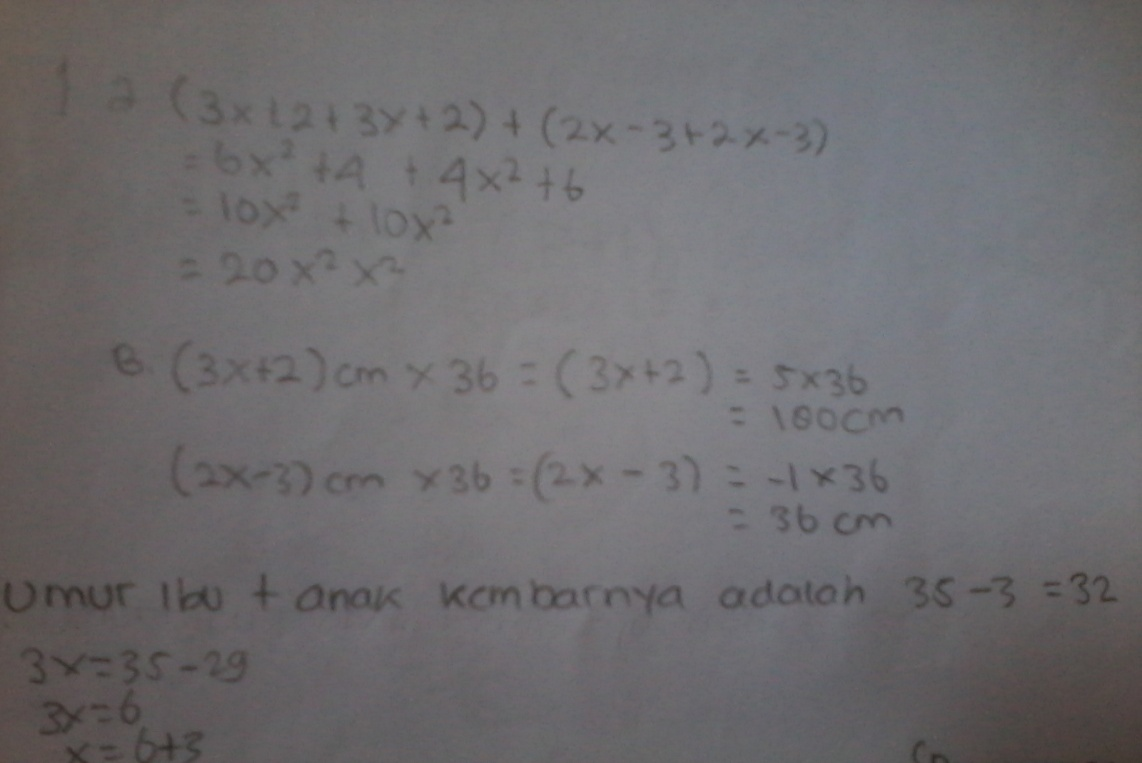 1 a (3x+2+3x+2)+(2x-3+2x-3)
= 6x² +4 + 4x² +6
= 10x² + 10x²
= 20x² x²
B. (3x+2)cm x 36 = (3x+2) = 5x36
= 180cm
(2x-3)cm x36 =(2x - 3) = -1 x 36
= 36 cm
Umur ibu + anak kembarnya adalah 35-3 =32
3x=35-29
3x=6
x=6+3